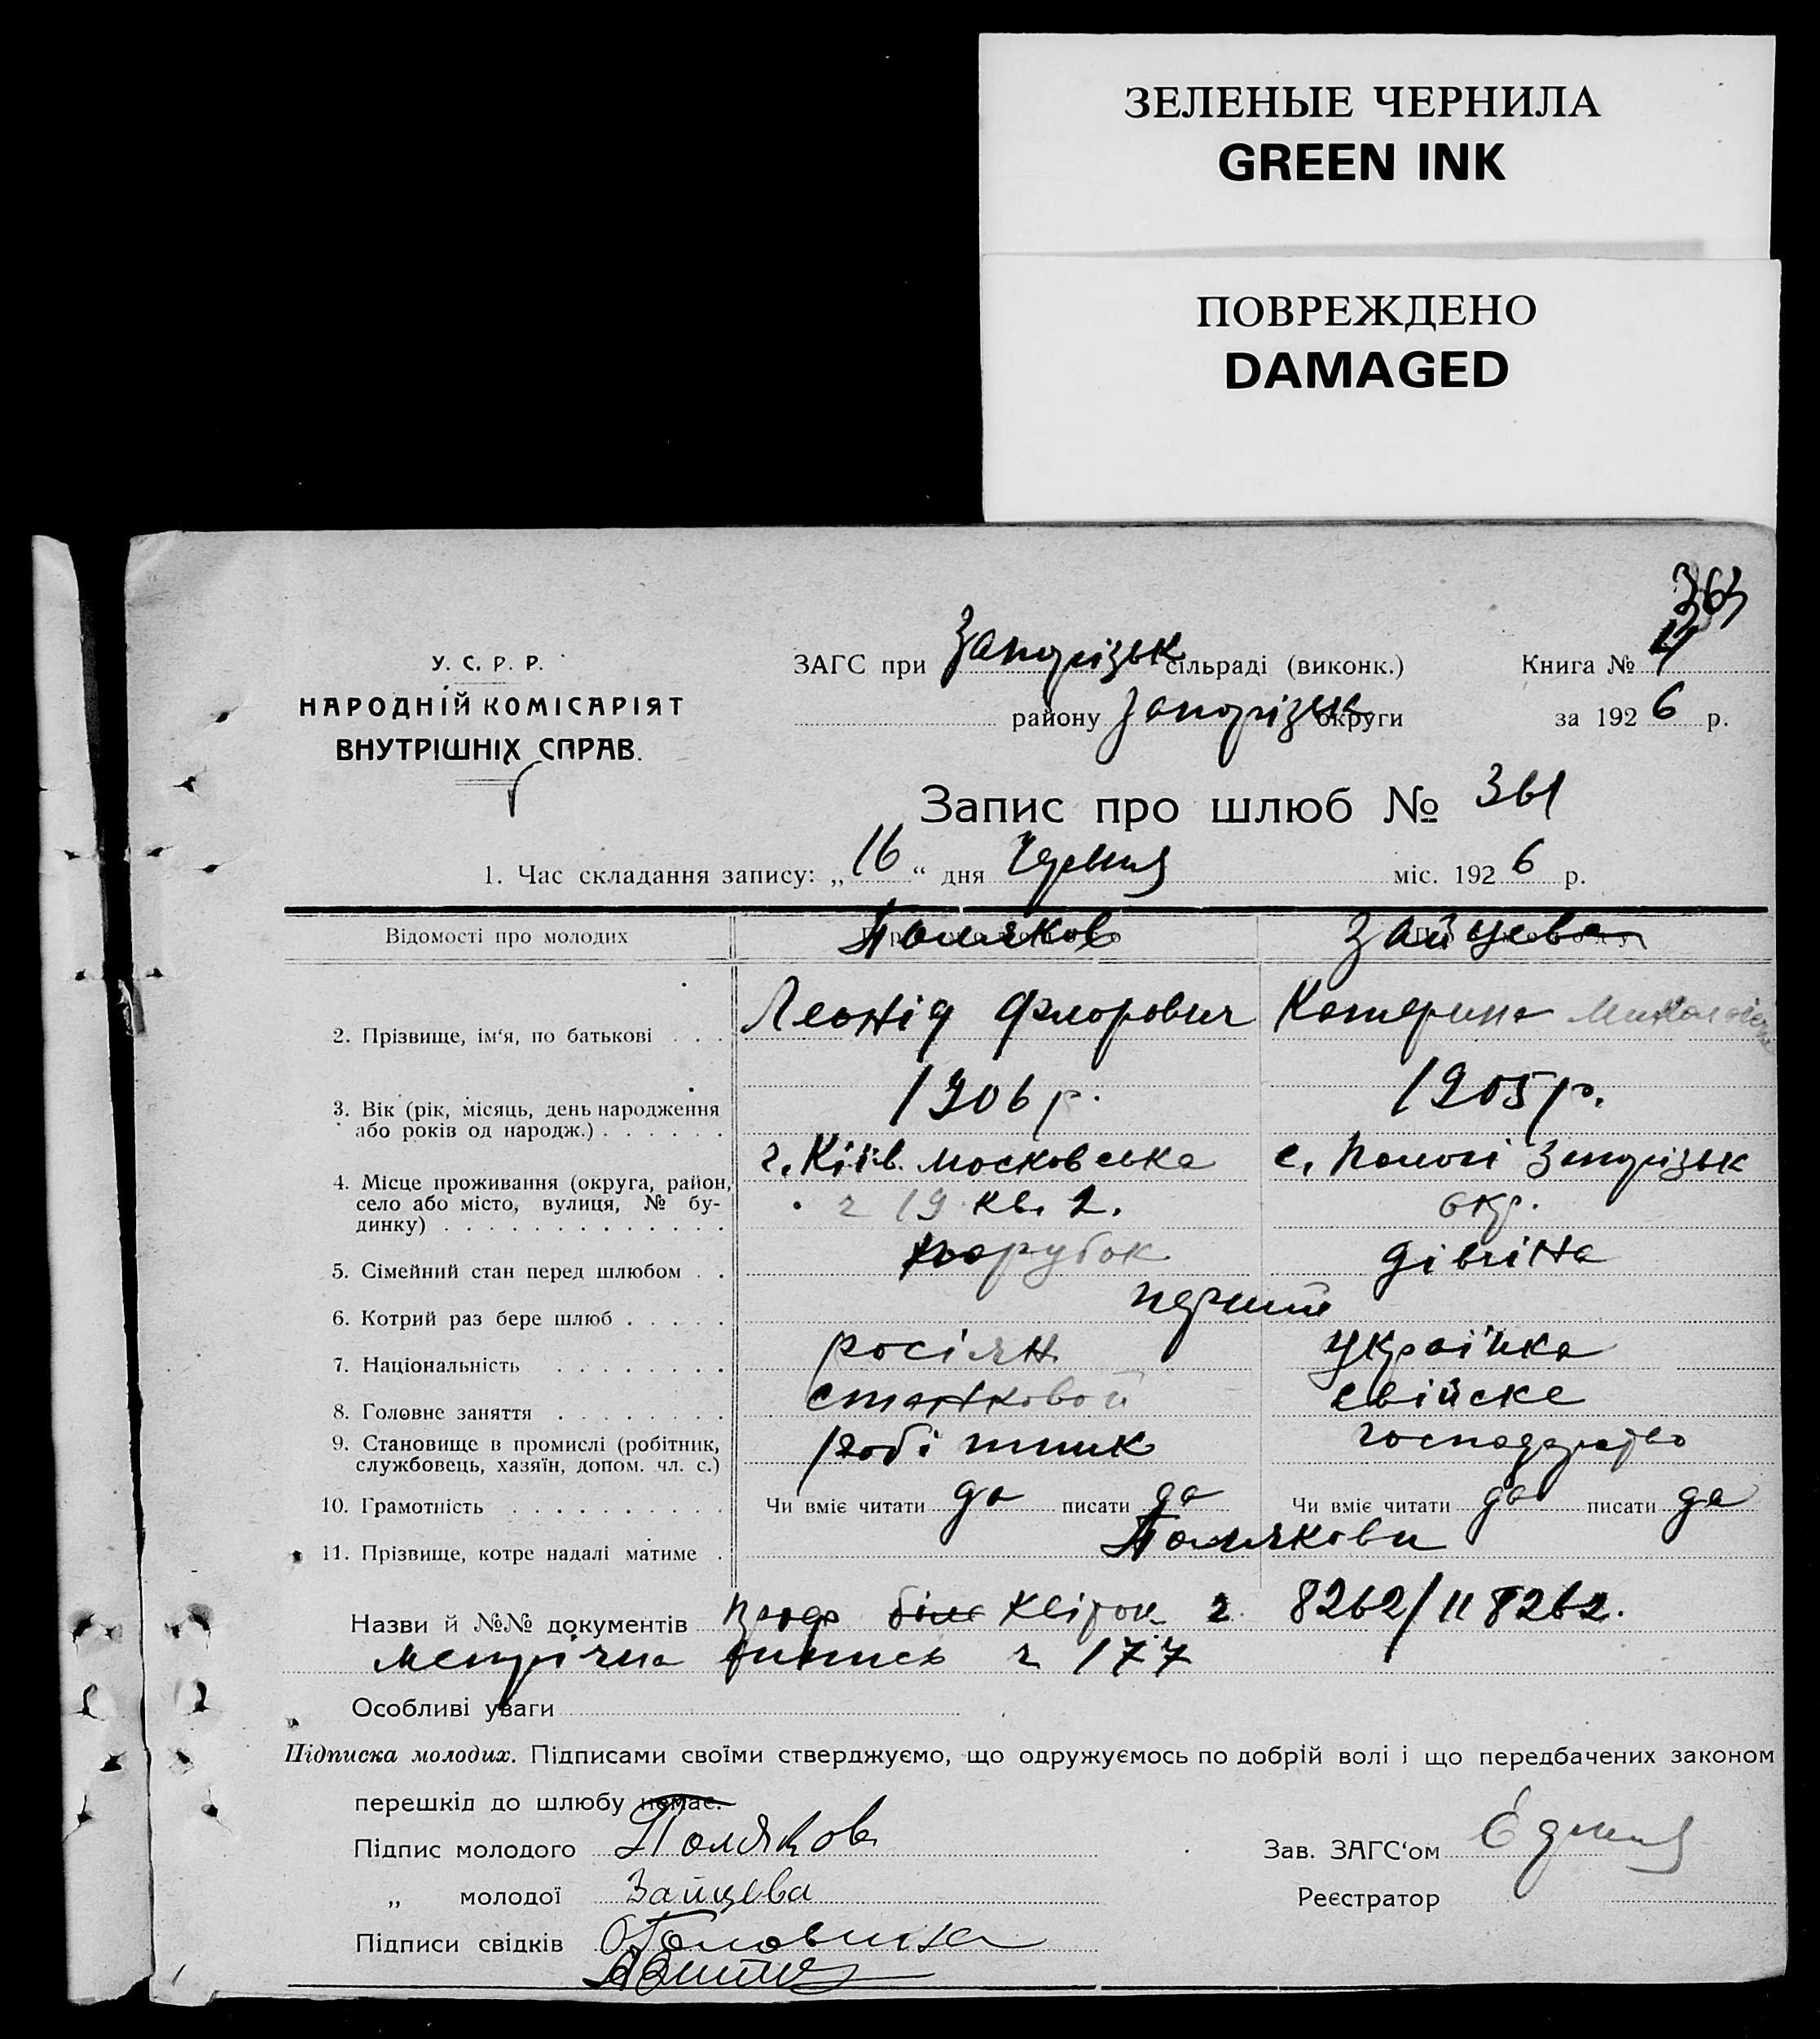 ЗЕЛЕНЫЕ ЧЕРНИЛА
GREEN INK
ПОВРЕЖДЕНО
DAMAGED
363
У. С. Р. Р.
НАРОДНІЙ КОМІСАРІЯТ
ВНУТРІШНІХ СПРАВ.
ЗАГС при Запорізьк сільраді (виконк.) Книга №
району Запорізьк округи за 1926 р.
Запис про шлюб № 361
1. Час складання запису: „16“ дня Червня міс. 1926 р.
Відомості про молодих Поляков Зайцева
2. Прізвище, ім‘я, по батькові . . . Леонід Флорович Катерина Миколаївна
3. Вік (рік, місяць, день народження або років од народж.) . . . . . . 1906 р. 1905 р.
4. Місце проживання (округа, район, село або місто, вулиця, № будинку) . . . . . . . . . . . . . г. Київ. Московська ч 19 кв. 2. с. Пологі Запорізьк окр.
5. Сімейний стан перед шлюбом . . парубок дівчина
6. Котрий раз бере шлюб . . . . . перший
7. Національність . . . . . . . . росіян українка
8. Головне заняття . . . . . . . . станковой свійске
9. Становище в промислі (робітник, службовець, хазяїн, допом. чл. с.) робітник господарство
10. Грамотність . . . . . . . . . . Чи вміє читати да писати да Чи вміє читати да писати да
11. Прізвище, котре надалі матиме . Полякови
Назви й №№ документів ч. 8262/118262.
метрічна випись ч 177
Особливі уваги
Підписка молодих. Підписами своїми стверджуємо, що одружуємось по добрій волі і що передбачених законом
перешкід до шлюбу немає.
Підпис молодого Поляков Зав. ЗАГС‘ом
„ молодої Зайцева Реєстратор
Підписи свідків Головина